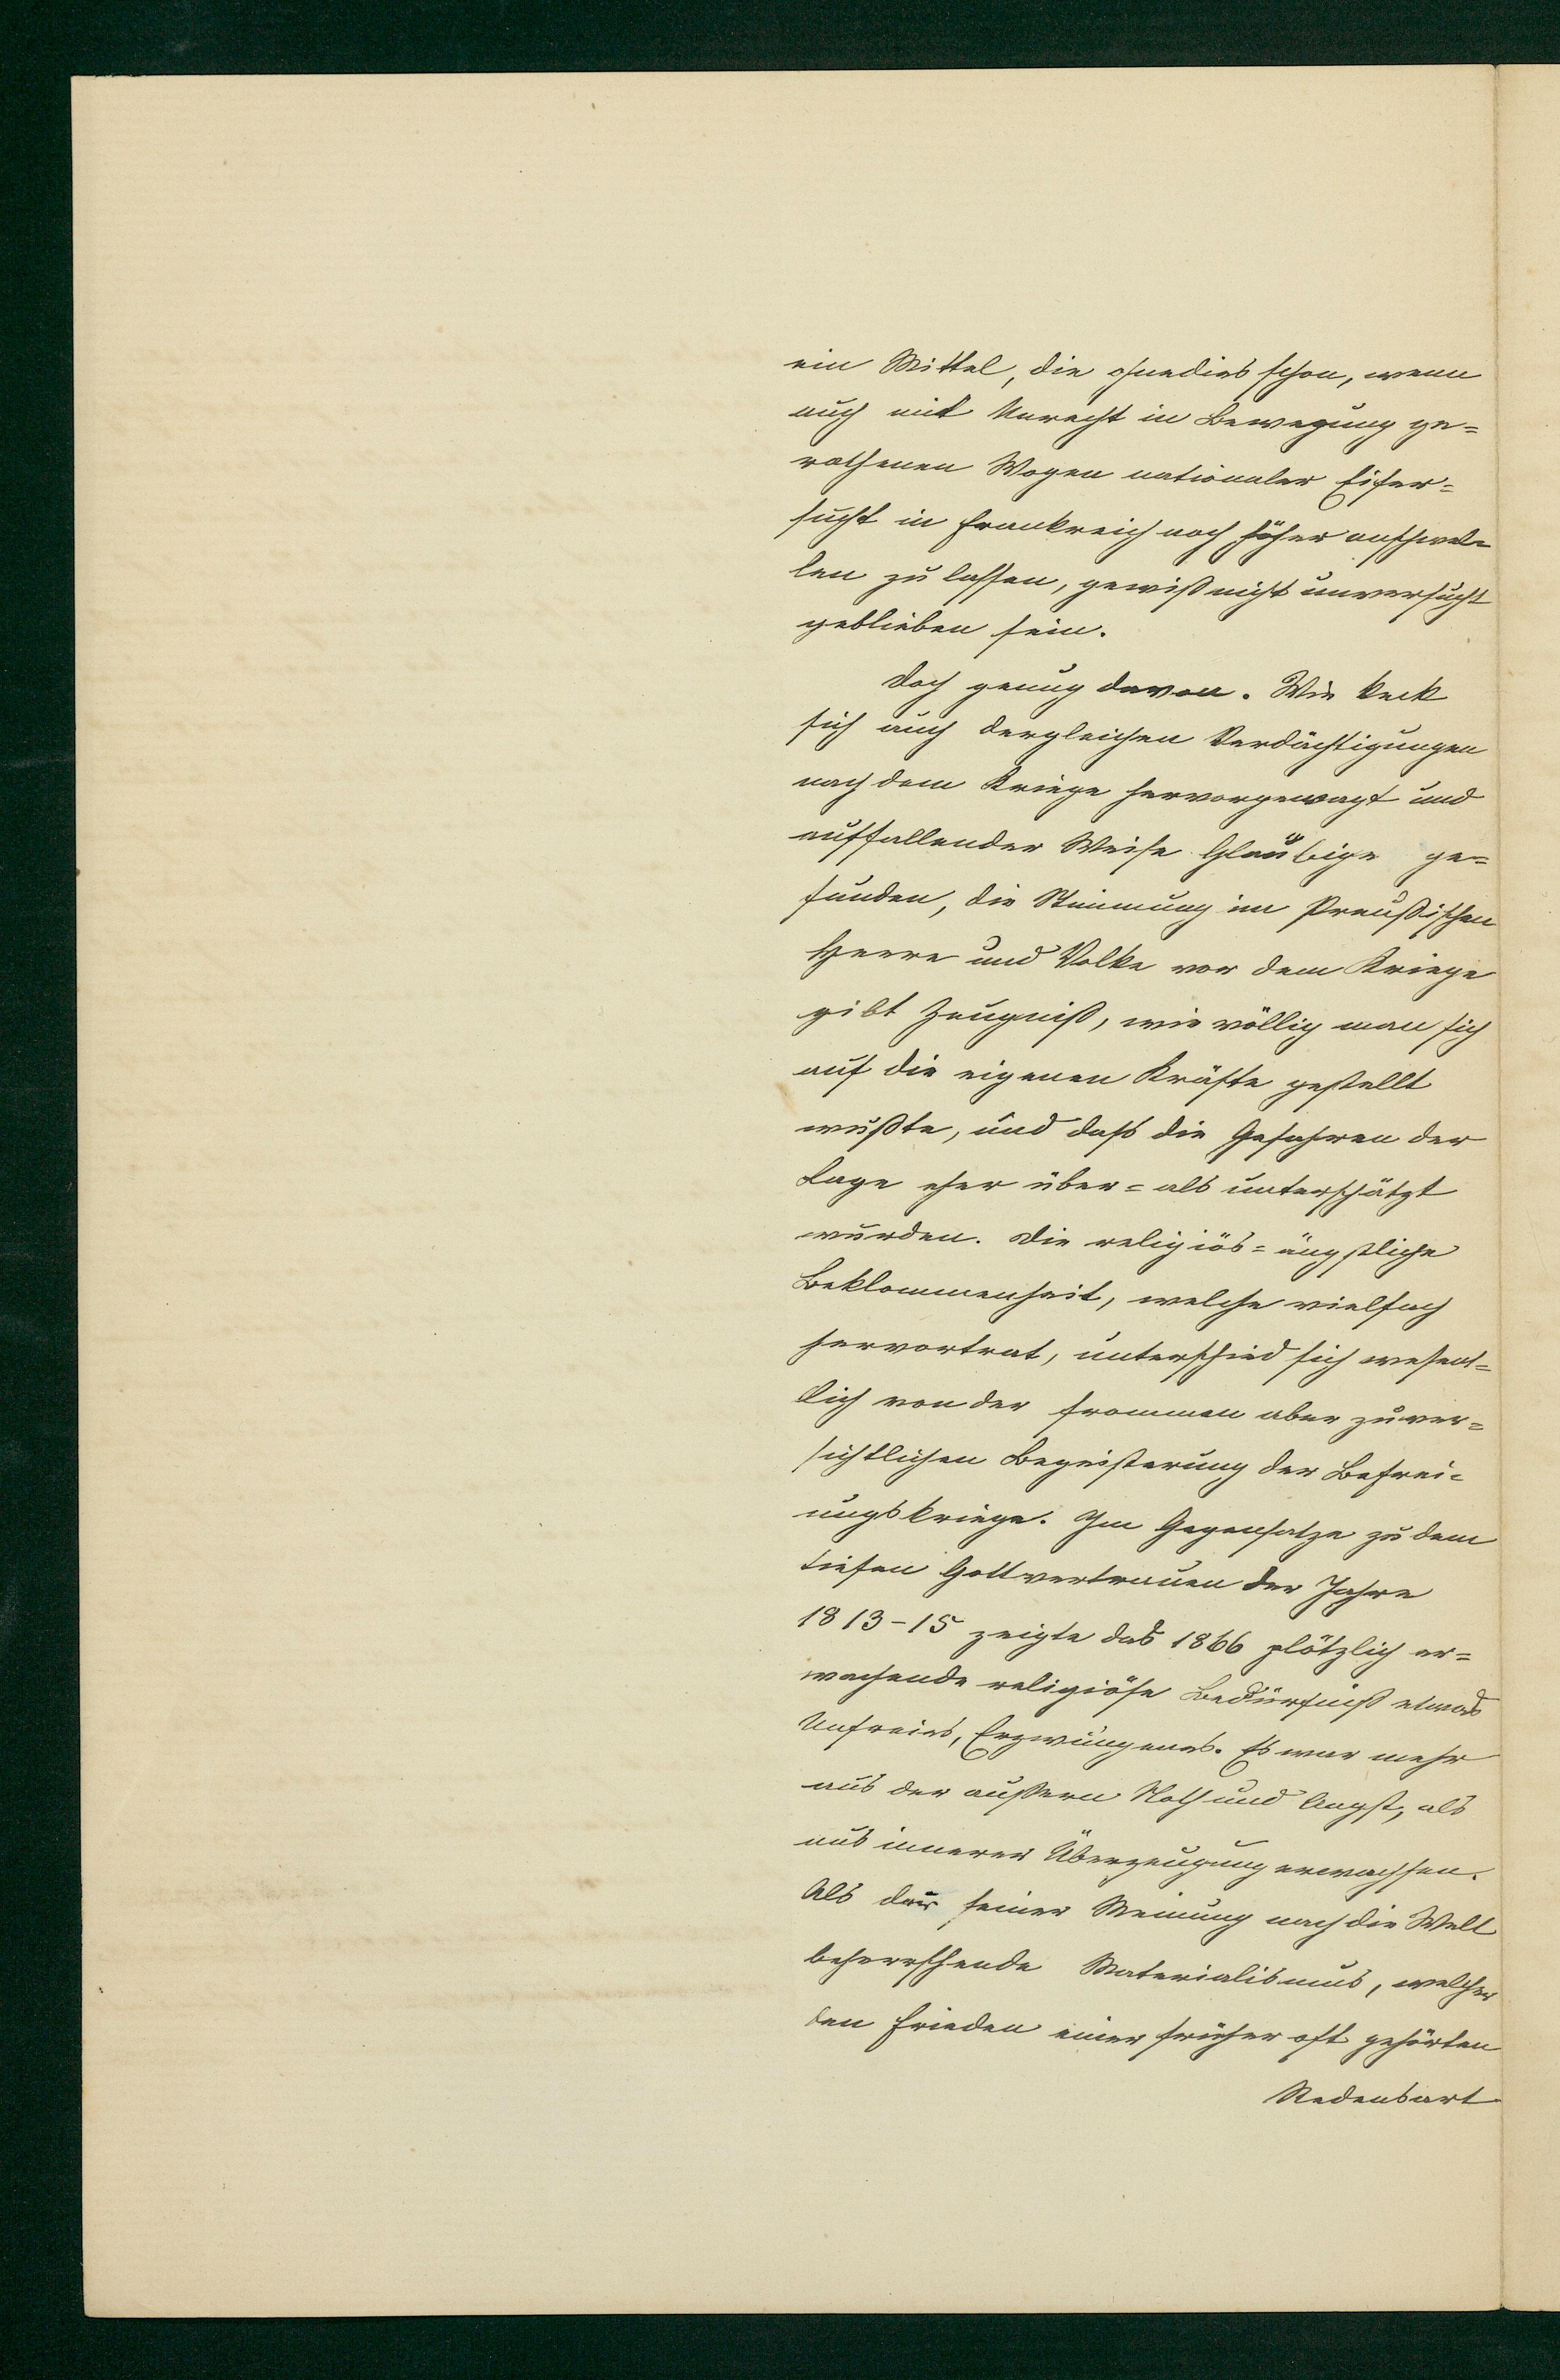 ein Mittel, die ohnedies schon, wenn
auch mit Unrecht in Bewegung ge=
rathenen Wogen nationaler Eifer=
sucht in Frankreich noch höher anschwel=
len zu lassen, gewiß nicht unversucht
geblieben sein.
Doch genug davon. Wie keck
sich auch dergleichen Verdächtigungen
nach dem Kriege hervorgewagt und
auffallender Weise Gläubige ge=
funden, die Stimmung im Preußischen
Heere und Volke vor dem Kriege
gibt Zeugniß, wie völlig man sich
auf die eigenen Kräfte gestellt
wußte, und daß die Gefahren der
Lage eher über= als unterschätzt
wurden. Die religiös=ängstliche
Beklommenheit, welche vielfach
hervortrat, unterschied sich wesent=
lich von der frommen aber zuver=
sichtlichen Begeisterung der Befrei=
ungskriege. Im Gegensatze zu dem
tiefen Gottvertrauen der Jahre
1813-15 zeigte das 1866 plötzlich er=
wachende religiöse Bedürfniß etwas
Unfreies, Erzwungenes. Es war mehr
aus der äußern Noth und Angst, als
aus innerer Überzeugung erwachsen.
Als der seiner Meinung nach die Welt
beherrschende Materialismus, welcher
den Frieden einer früher oft gehörten
Redensart